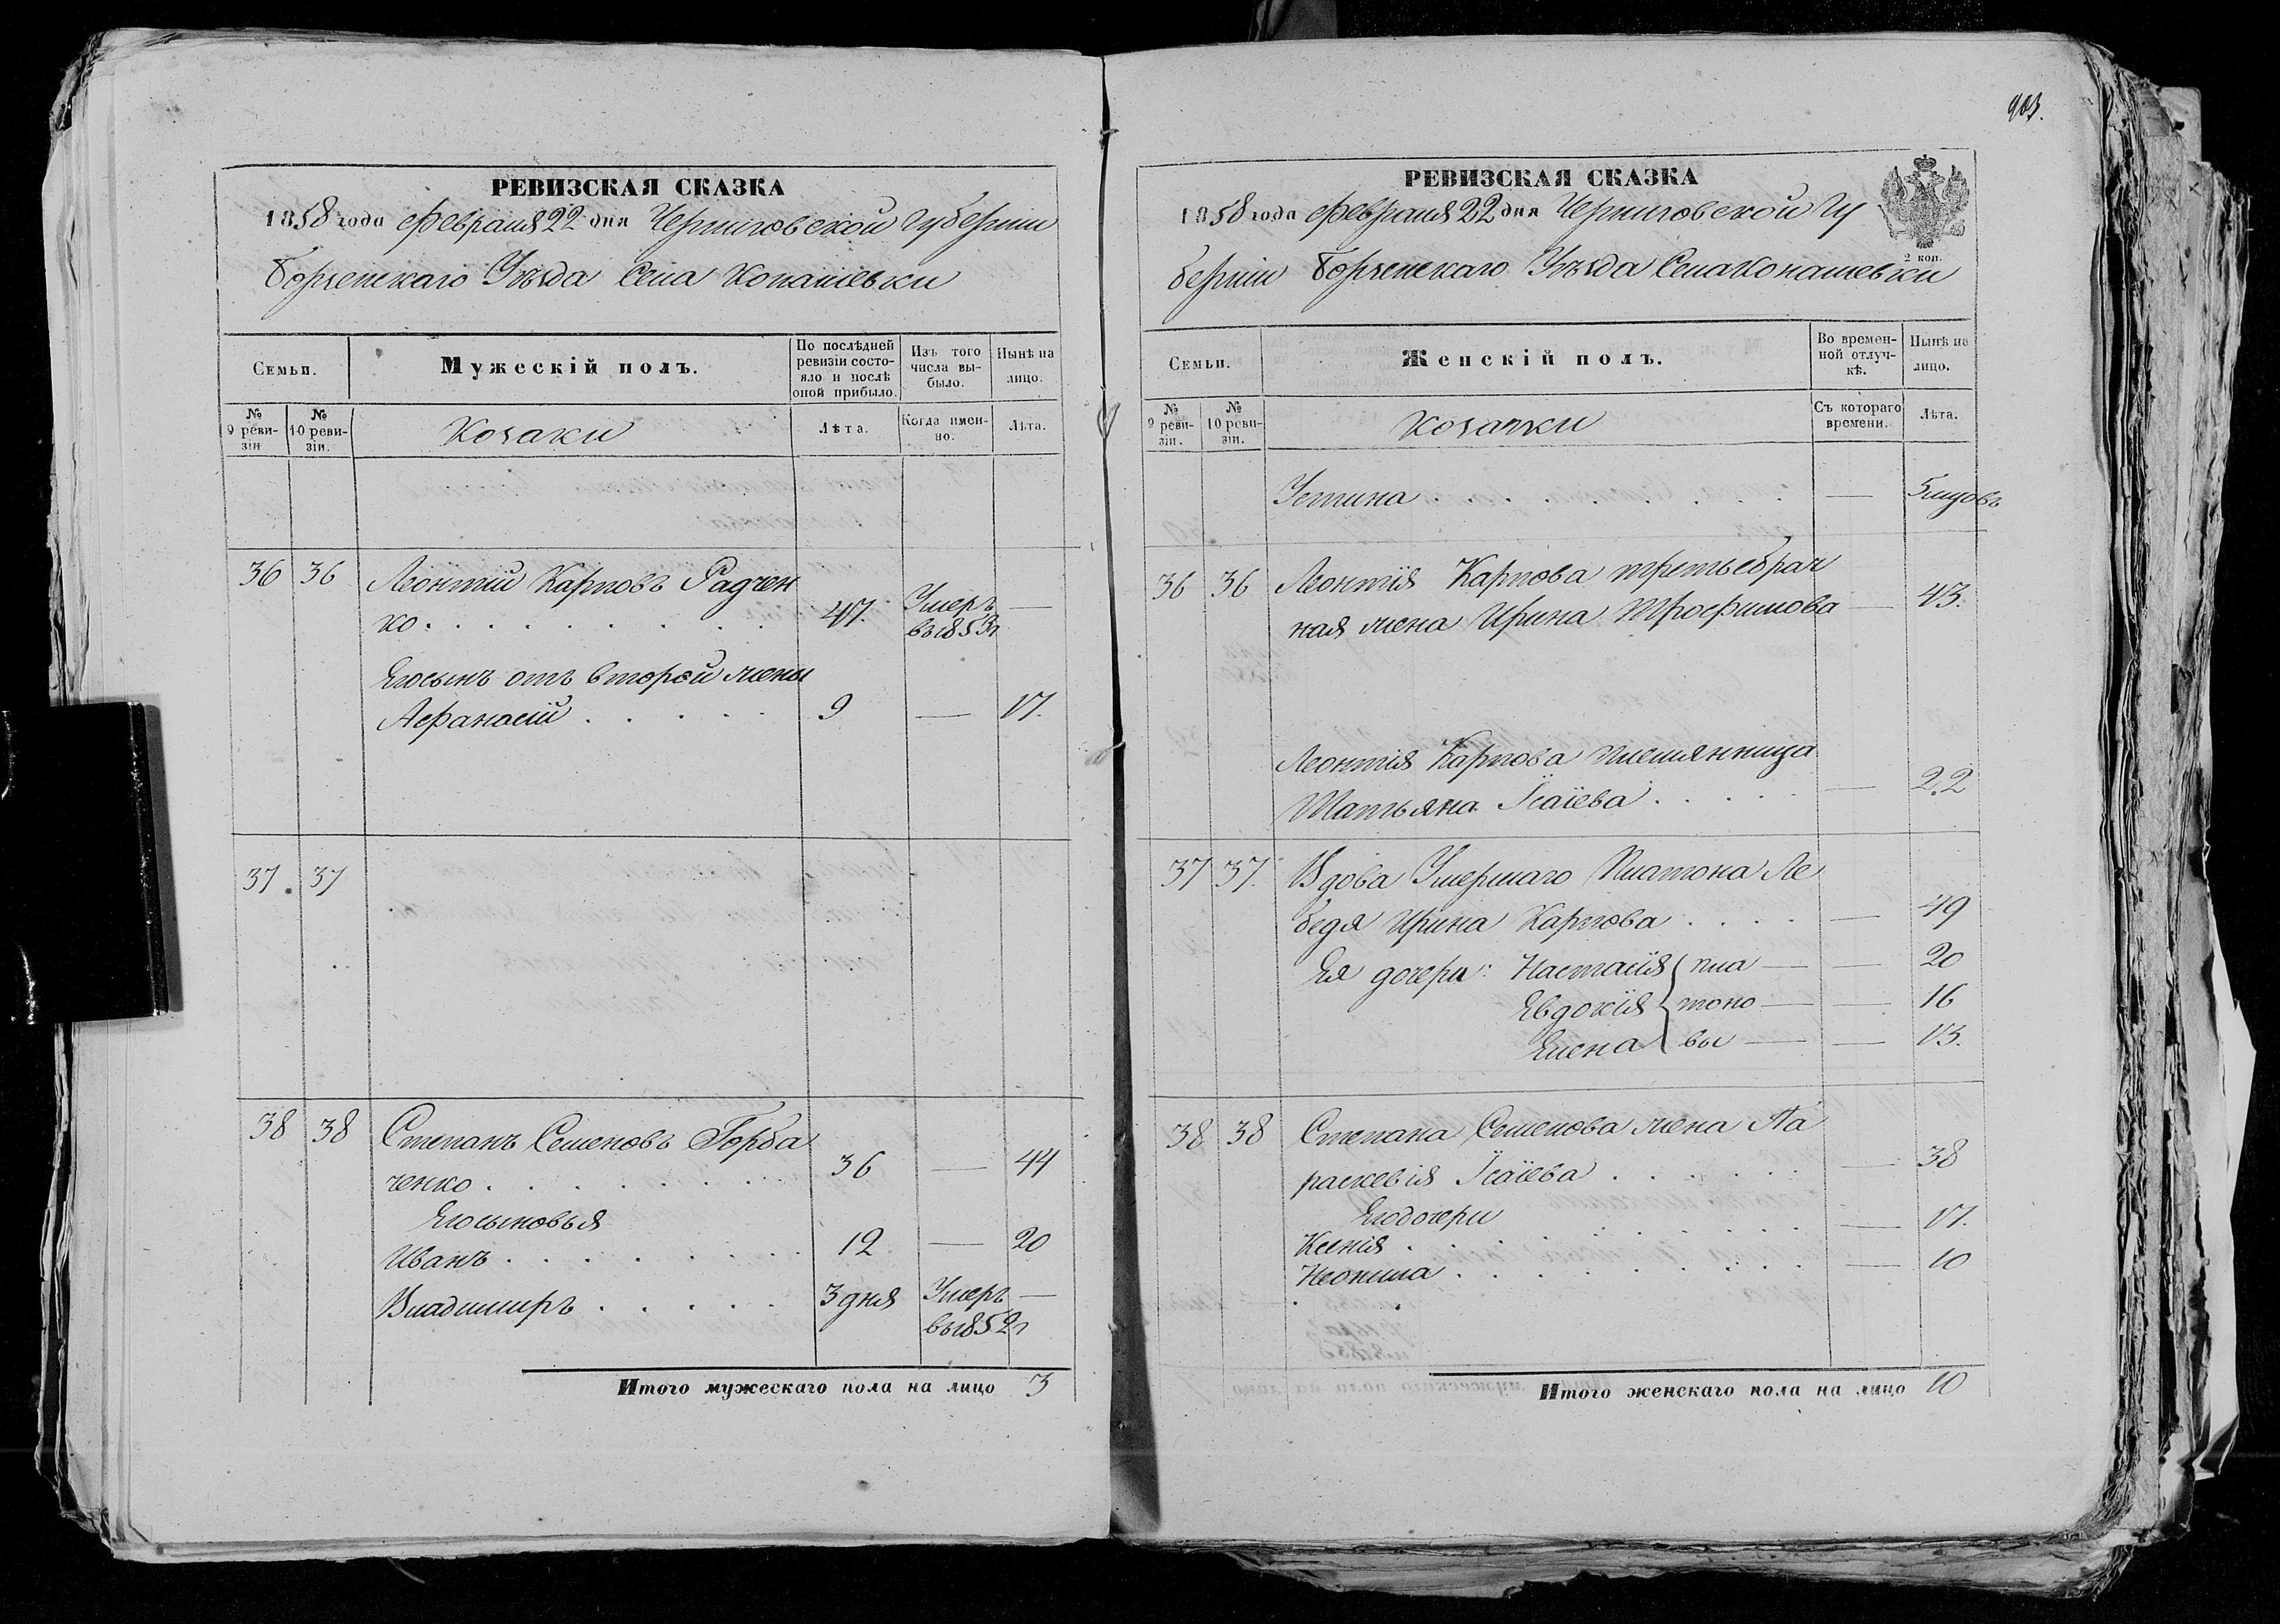 РЕВИЗСКАЯ СКАЗКА
1858 года февраля 22 дня Черниговской Губернии
Борзенскаго Уѣзда Села Конашевки
Семьи.
Мужескій полъ.
По послѣдней ревизіи состояло и послѣ оной прибыло.
Изъ того числа выбыло.
Нынѣ на лицо.
№ 9 ревизіи
№ 10 ревизіи.
Козаки
Лѣта.
Когда именно.
Лѣта.
36 36 Леонтій Карповъ Радчен
ко . . . . . . . . 47. Умеръ въ 1853 г —
Его сынъ отъ второй жены
Афанасій . . . . . 9 — 17.
37. 37
38 38 Степанъ Семеновъ Горба
ченко . . . . . . . . 36 — 44
Его сыновья
Иванъ . . . . . . . . 12 — 20
Владимиръ . . . . . 3 дня Умеръ въ 1852 г —
Итого мужескаго пола на лицо 3
903.
РЕВИЗСКАЯ СКАЗКА
1858 года февраля 22 дня Черниговской Гу
2 коп.
берніи Борзенскаго Уѣзда Села Конашевки
Семьи.
Женскій полъ.
Во временной отлучкѣ.
Нынѣ на лицо.
№ 9 ревизіи.
№ 10 ревизіи.
Козачки
Съ котораго времени.
Лѣта.
Устина . . . . . . . . — 5 мѣсцовъ
36 36 Леонтія Карпова третьебрач
ная жена Ирина Трофимова — 43.
Леонтія Карпова племянница
Татьяна Ісаіева . . . . . — 22
37 37. Вдова Умершаго Платона Ле
бедя Ирина Карпова . . . . — 49
Ея дочери: Настасія { пла — — 20
Евдокія { тоно — — 16
Елена { вы — — 13.
38 38 Степана Семенова жена Па
раскевія Ісаіева . . . . . . — 38
Его дочери
Ксенія . . . . . . . . . — 17.
Неонила . . . . . . . . . — 10
Итого женскаго пола на лицо 10